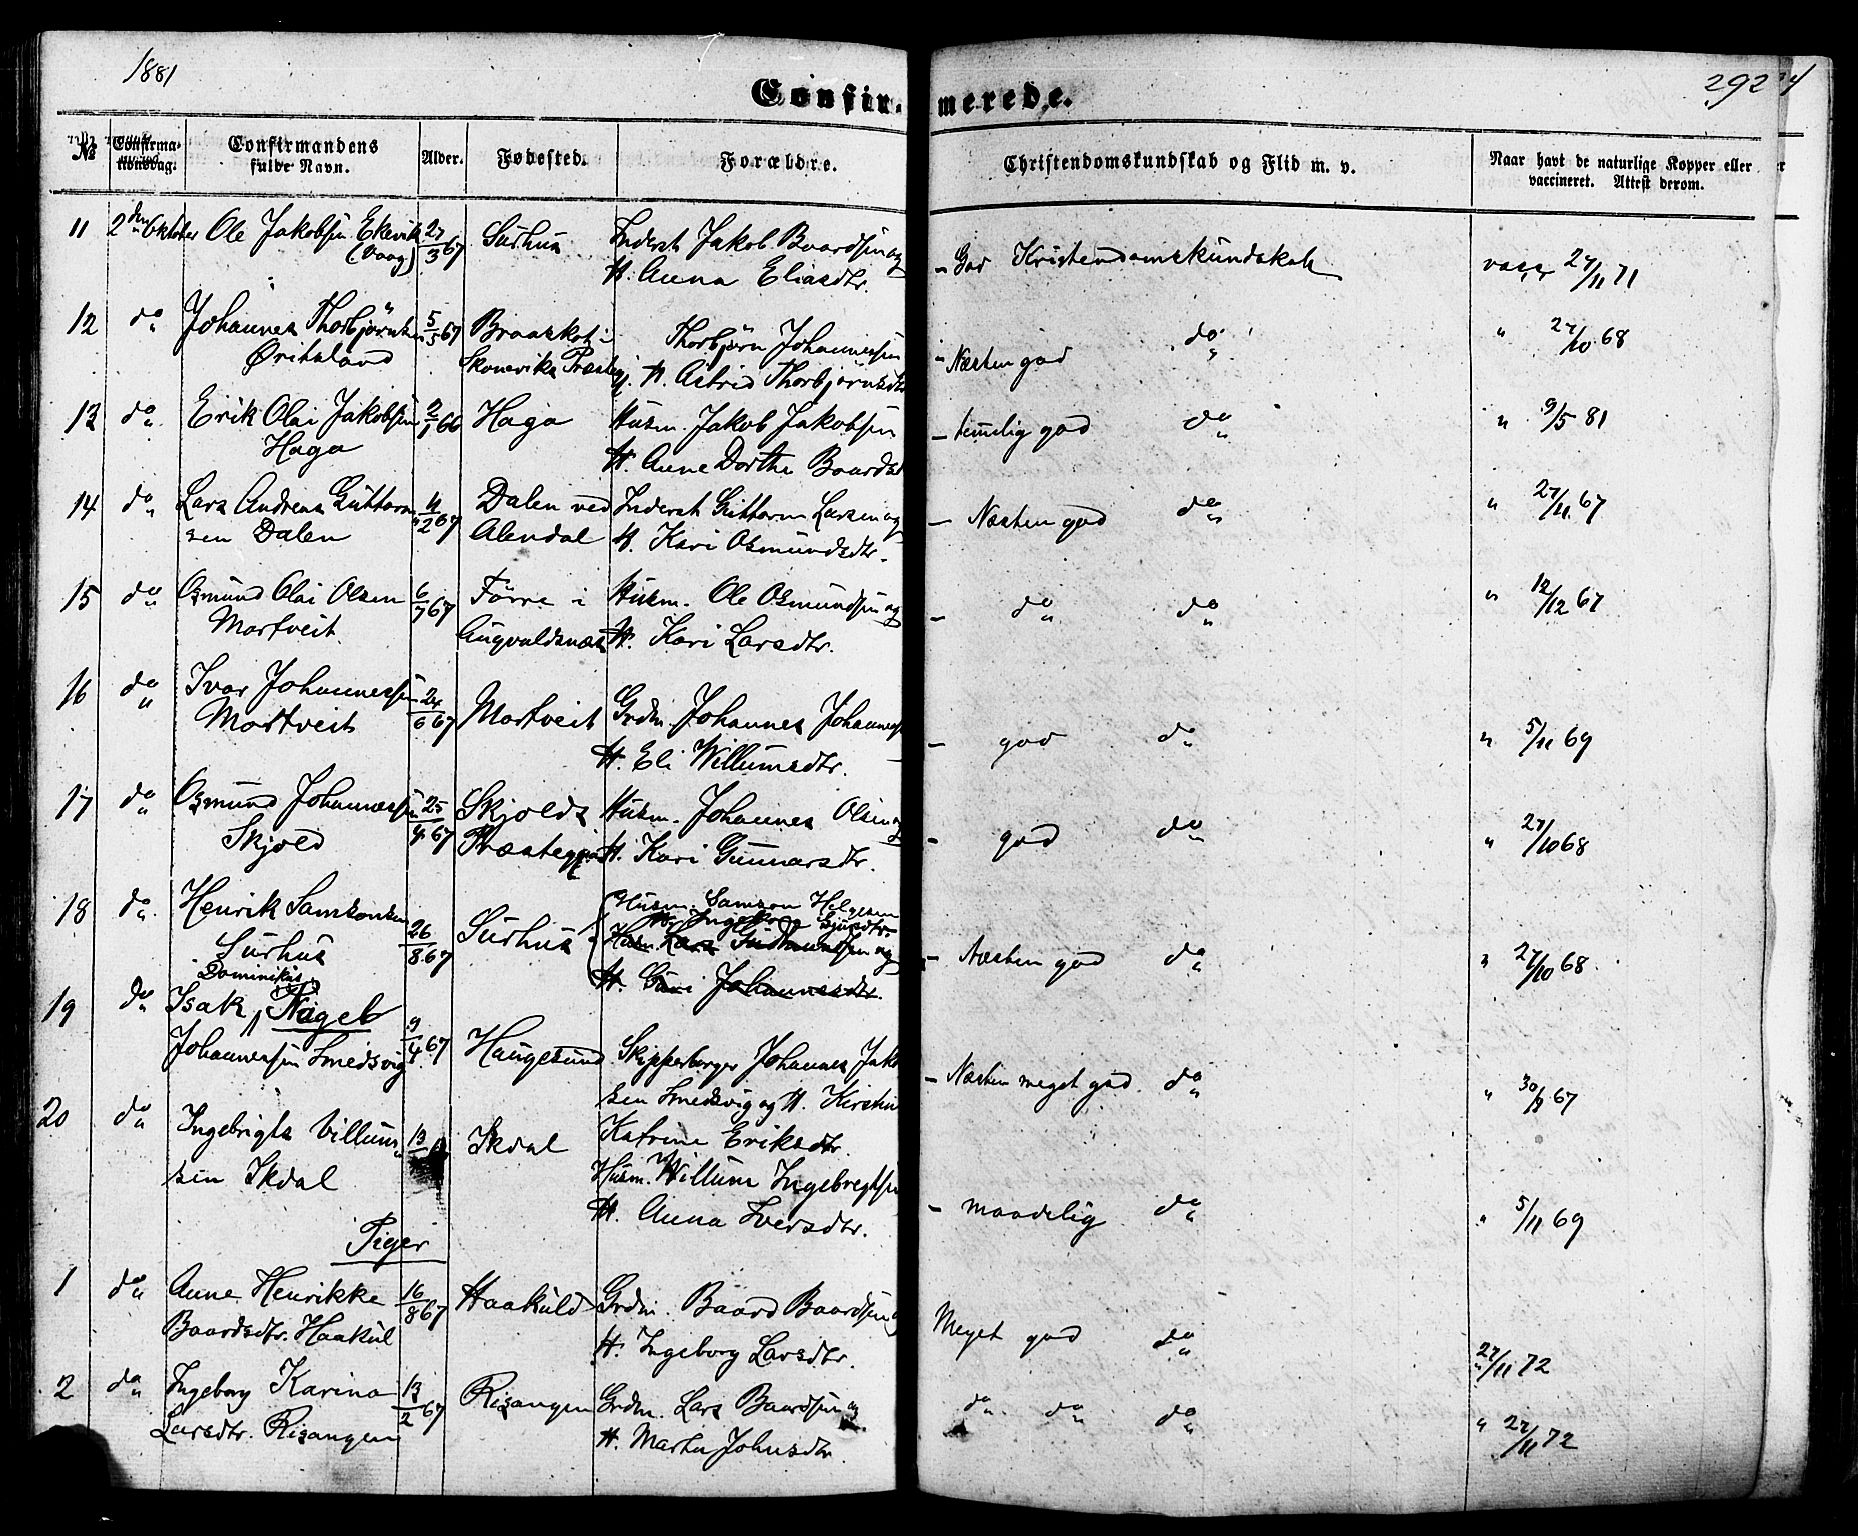 1881
Confir-
merede.
292
№
Confirma-
tionsdag.
Confirmandens
fulde Navn.
Alder.
Fødested.
Forældre.
Christendomskundskab og Flid m. v.
Naar havt de naturlige Kopper eller
vaccineret. Attest derom.
11 2den Oktober Ole Jakobsen Ekevik 27/3 67 Surhus Inderst Jakob Baardsen og - God Kristendomskundskab vacc. 27/11 71
(Vaag) H. Anna Eliasdtr.
12 do Johannes Thorbjørnsen 5/5 67 Braaskot i Thorbjørn Johannessen - Næsten god do " 27/10 68
Øritsland Skoneviks Præsteg. H. Astrid Thorbjørnsdtr
13 do Erik Olai Jakobsen 2/1 66 Haga Husm. Jakob Jakobsen - temmelig god do " 9/5 81
Haga H. Anne Dorthe Baardsd
14 do Lars Andreas Guttorm 4/2 67 Dalen ved Inderst Guttorm Larsen og - Næsten god do " 27/11 67
sen Dalen Alendal H. Kari Osmundsdtr.
15 do Osmund Olai Olsen 6/7 67 Førre i Husm. Ole Osmundsen og - do do " 12/12 67
Mortveit. Augvaldsnæs H. Kari Larsdtr.
16 do Ivar Johannessen 24/6 67 Mortveit Grdm. Johannes Johannes - god do " 5/11 69
Mortveit H. Eli Willumsdtr.
17 do Osmund Johannessen 25/4 67 Skjolds Husm. Johannes Olsen og - god do " 27/10 68
Skjold Præstegj. H. Kari Gunnarsdtr.
18 do Henrik Samsonsen 26/8 67 Surhus Husm. Samson Helgesen - Næsten god do " 27/10 68
Surhus H. Ingeborg Sjursdtr.
Husm. Lars Gudmundsen og
H. Guri Johannesdtr.
Dominikus
19 do Isak Nagel 9/4 67 Haugesund Skipperborger Johannes Jakob - Næsten meget god do " 67
Johannessen Smedsvig sen Smedsvig og H. Kirstin
Katrine Eriksdtr.
20 do Ingebrigt Villum 13 Ikdal Husm. Willum Ingebregtsen - maadelig do " 5/11 69
sen Ikdal H. Anna Iversdtr.
Piger
1 do Anne Henrikke 16/8 67 Haakuld Grdm. Baard Baardsen og Meget god do 27/11 72
Baardsdtr. Haakul H. Ingeborg Larsdtr.
2 do Ingeborg Karina 13/2 67 Risangen Grdm. Lars Baardsen og do do do " 27/11 72
Larsdtr. Risangen H. Marta Johnsdtr